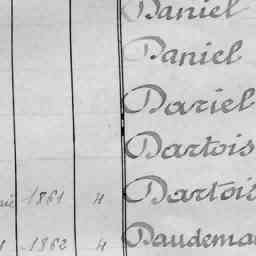 Daniel
Daniel
Dariel
Dartois
1861 4 Dartois
1862 4